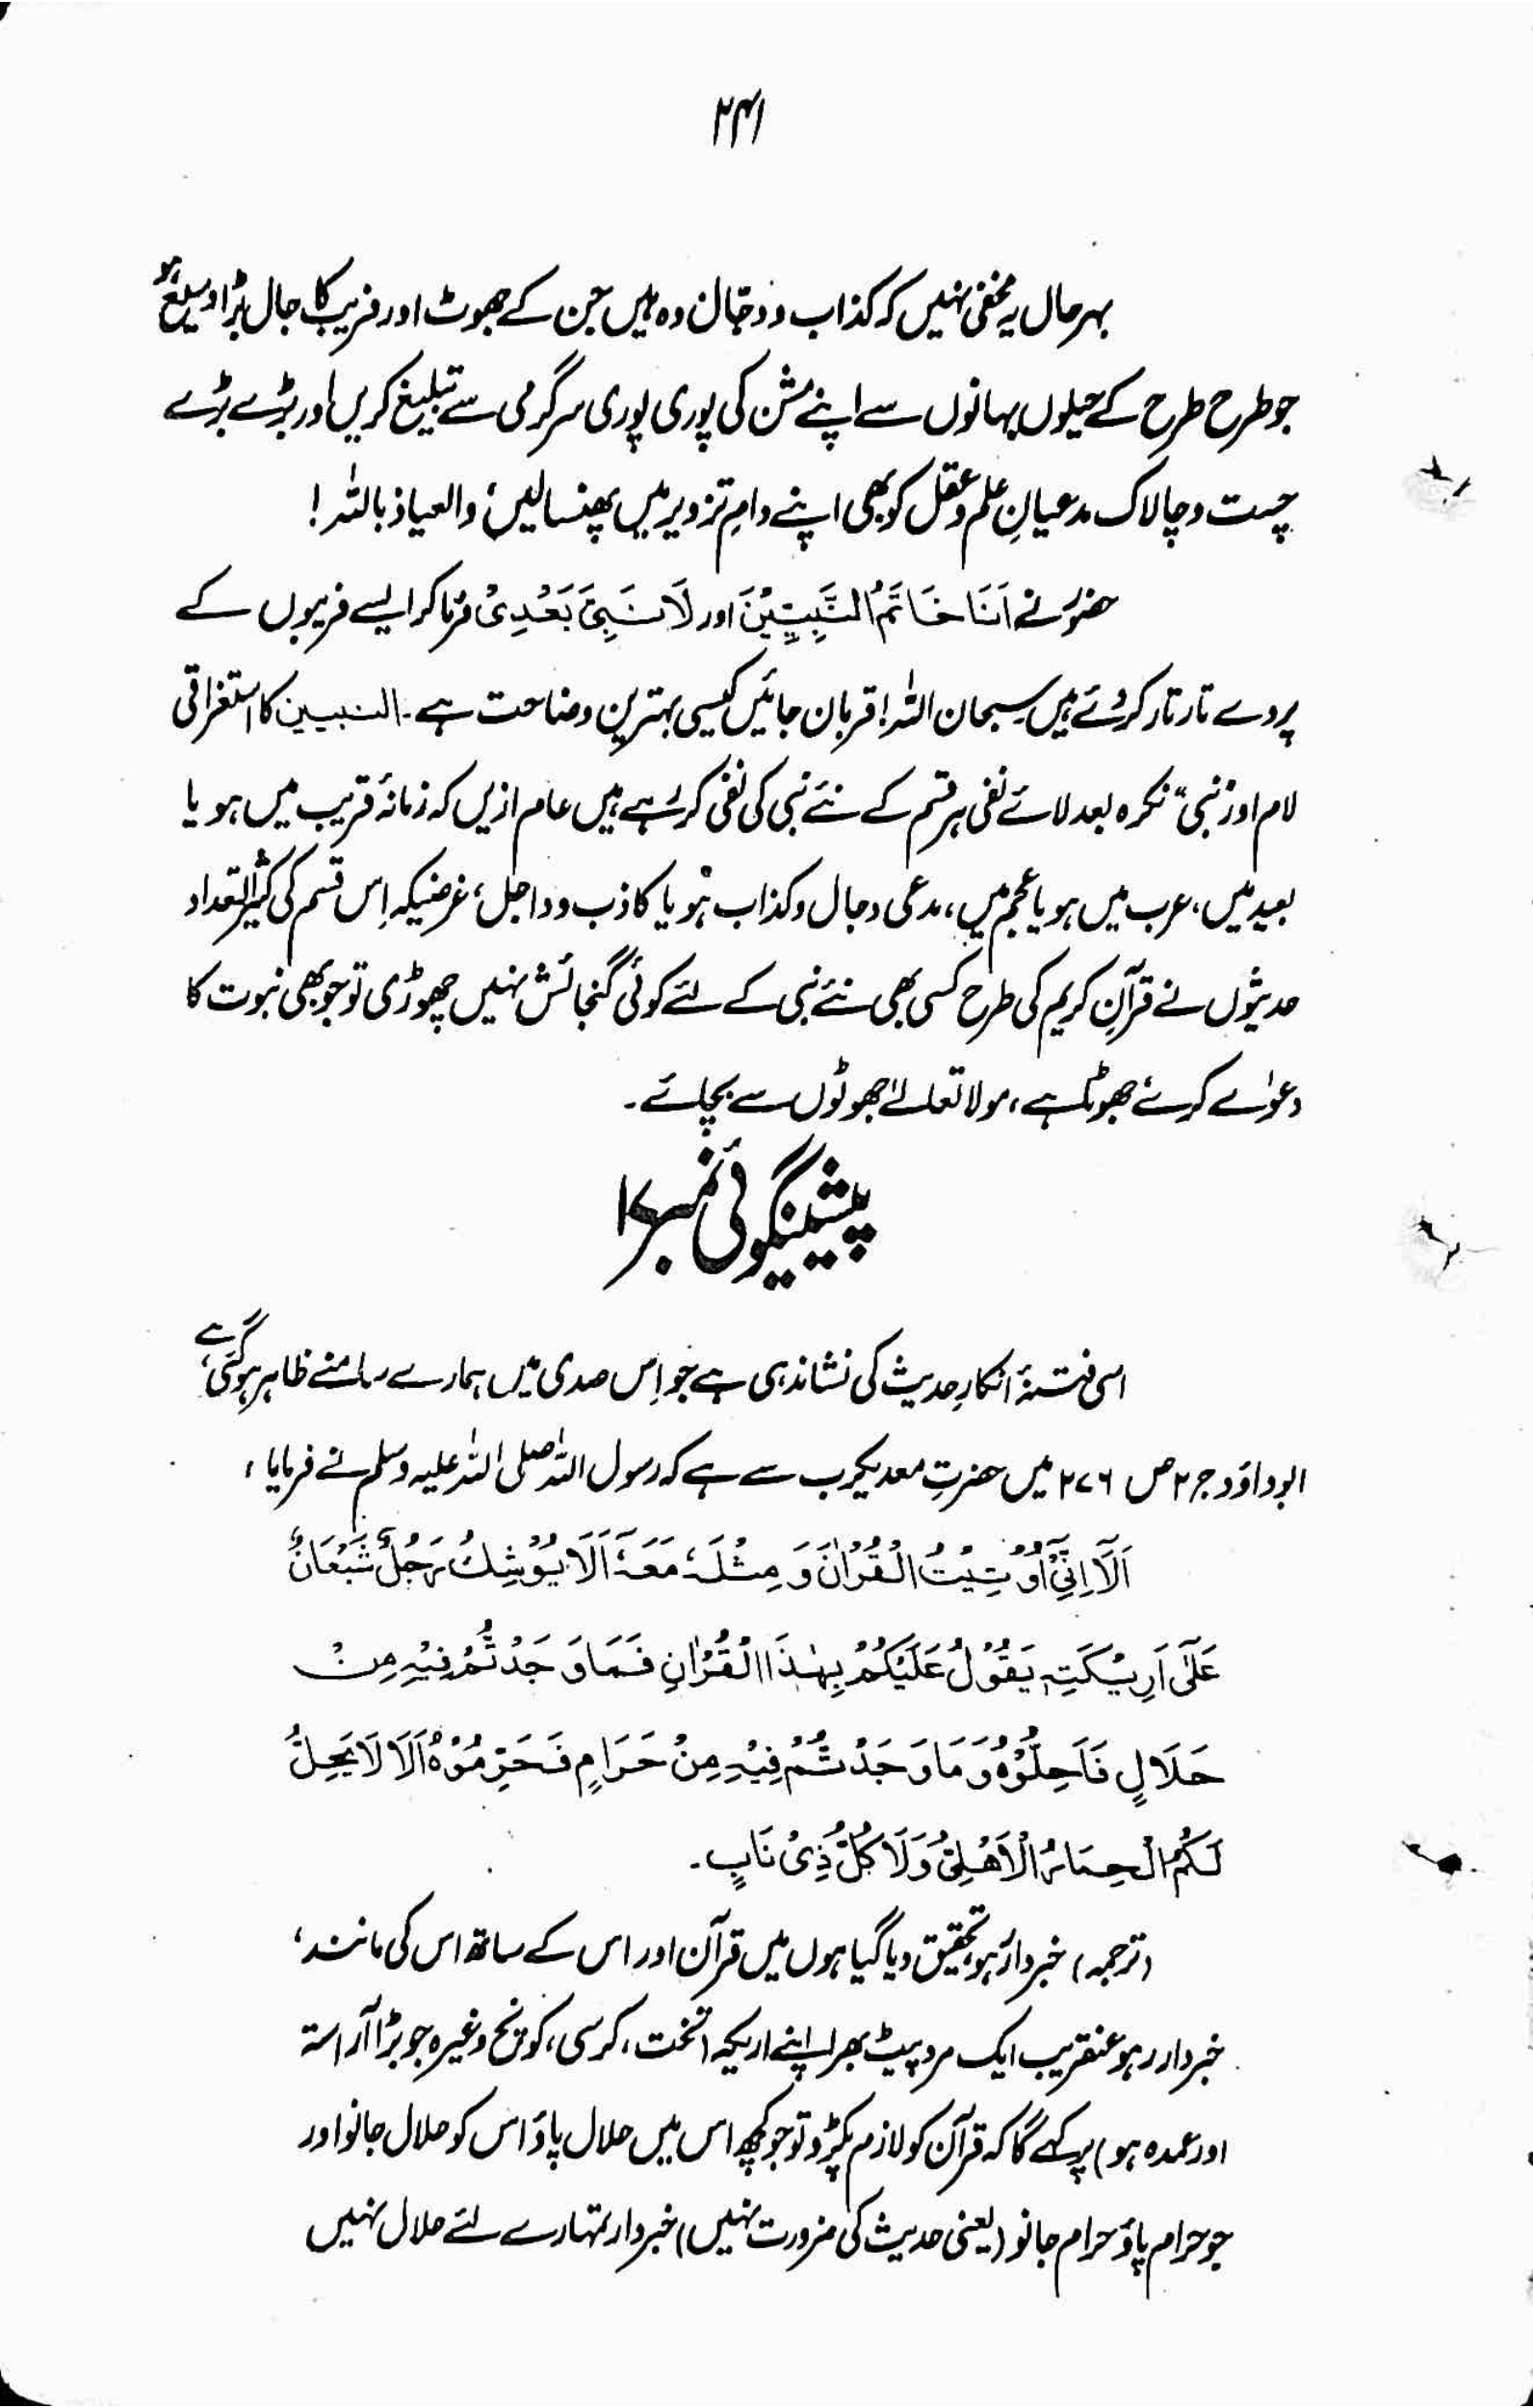 ۲۴۱
بہرحال یہ مخفی نہیں کہ کذاب و دجّال وہ ہیں جن کے جھوٹ اور فریب کا جال بڑا وسیع ہو
جو طرح طرح کے حیلوں بہانوں سے اپنے مشن کی پوری پوری سرگرمی سے تبلیغ کریں اور بڑے بڑے
چست و چالاک مدعیانِ علم و عقل کو بھی اپنے دامِ تزویر میں پھنسا لیں، والعیاذ باللہ!
حضورؐ نے اَنَا خَاتَمُ النَّبِیِّیْنَ اور لَا نَبِیَّ بَعْدِیْ فرما کر ایسے فریبوں کے
پردے تار تار کر دئے ہیں سبحان اللہ! قربان جائیں کیسی بہترین وضاحت ہے۔ النبیین کا استغراقی
لام اور نبی" نکرہ بعد لائے نفی ہر قسم کے نئے نبی کی نفی کر رہے ہیں عام ازیں کہ زمانۂ قریب میں ہو یا
بعید میں، عرب میں ہو یا عجم میں، مدعی دجال و کذاب ہو یا کاذب و داجل، غرضیکہ اِس قسم کی کثیر التعداد
حدیثوں نے قرآنِ کریم کی طرح کسی بھی نئے نبی کے لئے کوئی گنجائش نہیں چھوڑی تو جو بھی نبوت کا
دعوٰے کرے جھوٹا ہے، مولا تعالےٰ جھوٹوں سے بچائے۔
پیشینگوئی نمبر ۱۷
اسی فتنۂ انکارِ حدیث کی نشاندہی ہے جو اِس صدی میں ہمارے سامنے ظاہر ہو گئی ہے،
ابوداؤد ج ۲ ص ۲۷۶ میں حضرتِ معدیکرب سے ہے کہ رسول اللہ صلی اللہ علیہ وسلم نے فرمایا،
اَلَآ اِنِّیْٓ اُوْتِیْتُ الْقُرْاٰنَ وَ مِثْلَہٗ مَعَہٗٓ اَلَا یُوْشِكُ رَجُلٌ شَبْعَانٌ
عَلٰٓی اَرِیْکَتِہٖ یَقُوْلُ عَلَیْکُمْ بِہٰذَا الْقُرْاٰنِ فَمَا وَجَدْتُّمْ فِیْہِ مِنْ
حَلَالٍ فَاَحِلُّوْہُ وَمَا وَجَدْتُّمْ فِیْہِ مِنْ حَرَامٍ فَحَرِّمُوْہُ اَلَا لَا یَحِلُّ
لَکُمُ الْحِمَارُ الْاَھْلِیُّ وَلَا کُلُّ ذِیْ نَابٍ۔
(ترجمہ) خبردار ہو تحقیق دیا گیا ہوں میں قرآن اور اس کے ساتھ اس کی مانند،
خبردار رہو عنقریب ایک مرد پیٹ بھرا اپنے اریکہ (تخت، کرسی، کونچ وغیرہ جو بڑا آراستہ
اور عمدہ ہو) پر کہے گا کہ قرآن کو لازم پکڑو تو جو کچھ اس میں حلال پاؤ اس کو حلال جانو اور
جو حرام پاؤ حرام جانو (یعنی حدیث کی ضرورت نہیں) خبردار تمہارے لئے حلال نہیں